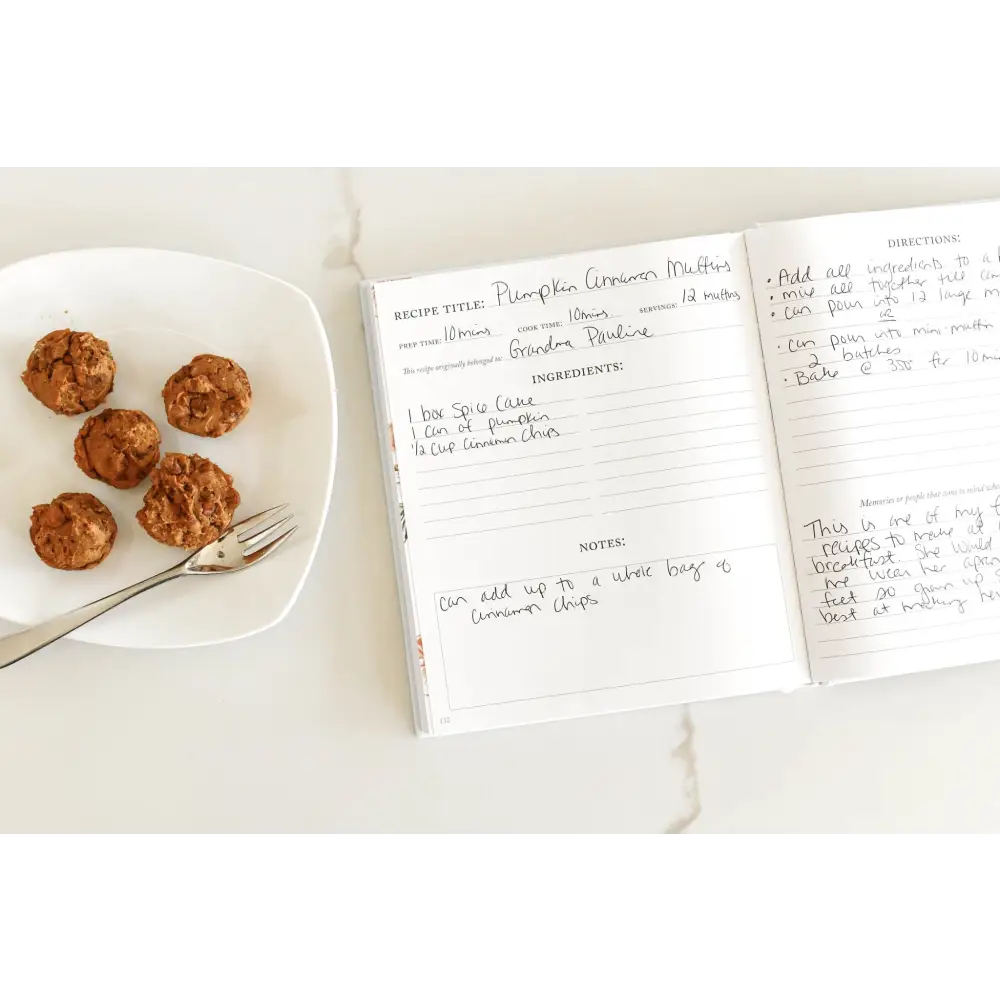 RECIPE TITLE: Pumpkin Cinnamon Muffins
PREP TIME: 10 mins COOK TIME: 10 mins. SERVINGS: 12 muffins
This recipe originally belonged to: Grandma Pauline
INGREDIENTS:
1 box Spice Cake
1 can of pumpkin
1/2 cup Cinnamon Chips
NOTES:
can add up to a whole bag of
cinnamon chips
132
DIRECTIONS:
• Add all ingredients to a
• mix all together till
• can pour into 12 large
OR
• can pour into mini-muffin
2 batches
• Bake @ 350° for 10
Memories or people that come to mind
This is one of my
recipes to make at
breakfast. She would
me wear her
feel so grown up
best at making her